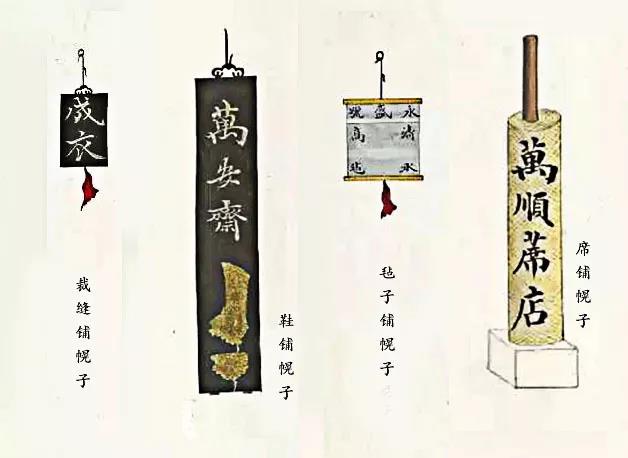 成衣
裁缝铺幌子
萬安齋
鞋铺幌子
永盛號
清水
高毡
毡子铺幌子
萬順蓆店
席铺幌子